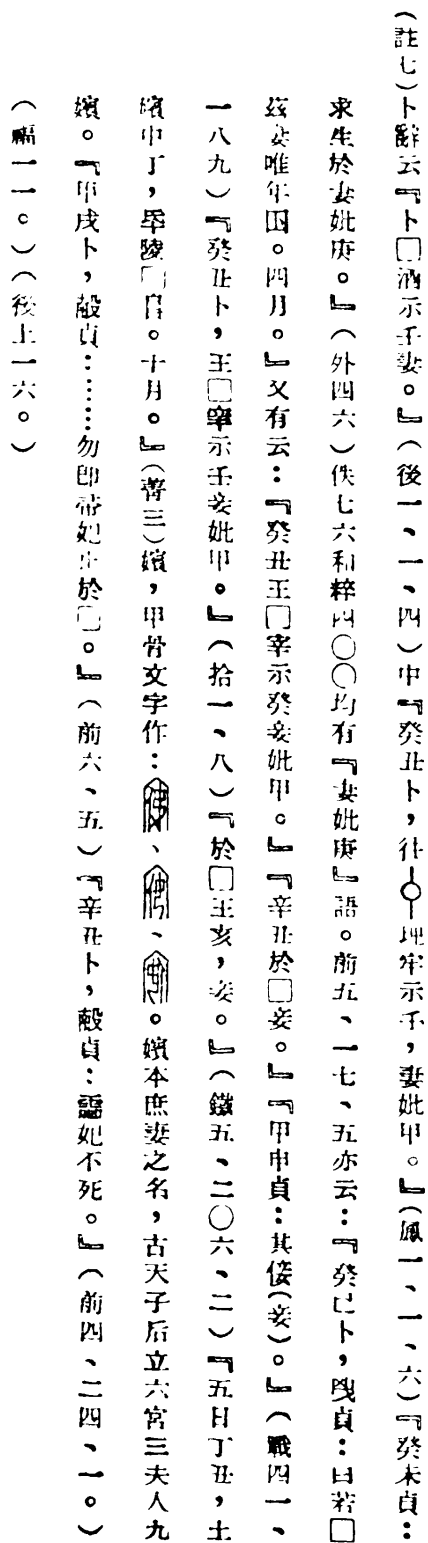 （註七）卜辭云『卜□酒示壬妻。』（後一、一、四）中『癸丑卜，往　　牢示壬，妻妣甲。』（鳳一、一、六）『癸未貞：
求生於妻妣庚。』（外四六）佚七六和粹四〇〇均有『妻妣庚』語。前五、一七、五亦云：『癸巳卜，　貞：曰若□
茲妻唯年囚。四月。』又有云：『癸丑王□宰示癸妾妣甲。』『辛丑於□妾。』『甲申貞：其㑪（妾）。』（戩四一、
一八九）『癸丑卜，王□宰示壬妾妣甲。』（拾一、八）『於□王亥，妾。』（鐵五、二〇六、二）『五日丁丑，土
嬪中丁，　陵□　。十月。』（菁三）嬪，甲骨文字作：　、　、　。嬪本庶妻之名，古天子后立六宮三夫人九
嬪。『甲戌卜，㱿貞：……勿卽帝妃　於□。』（前六、五）『辛丑卜，㱿貞：　妃不死。』（前四、二四、一。）
（　一一。）（後上一六。）